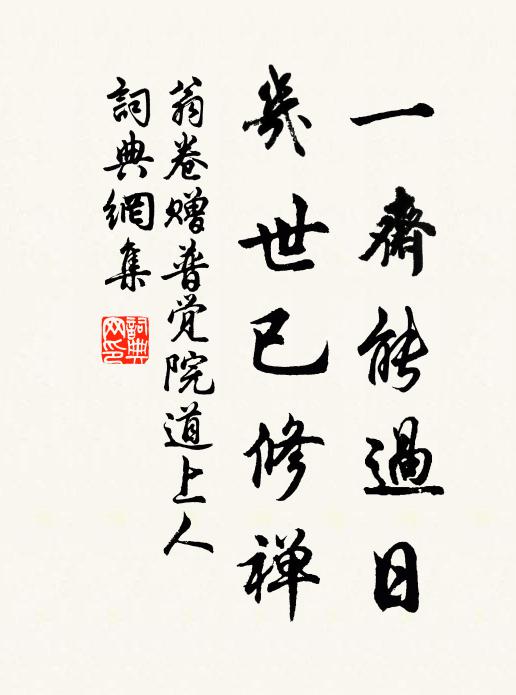 一齋能過日
幾世已修禅
翁卷赠普觉院道上人
詞典網集
詞典
网印